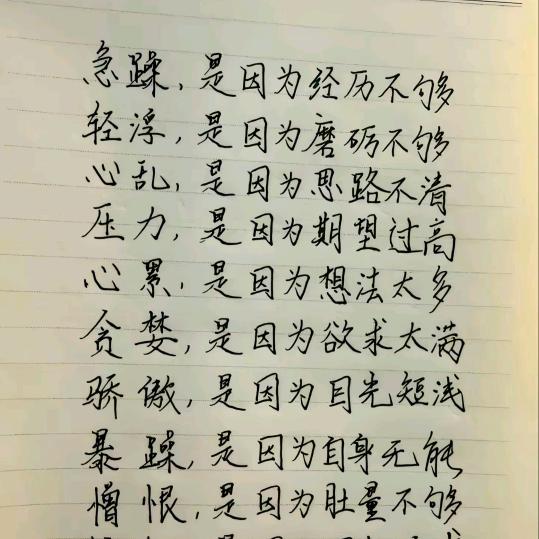 急躁，是因为经历不够
轻浮，是因为磨砺不够
心乱，是因为思路不清
压力，是因为期望过高
心累，是因为想法太多
贪婪，是因为欲求太满
骄傲，是因为目光短浅
暴躁，是因为自身无能
憎恨，是因为肚量不够